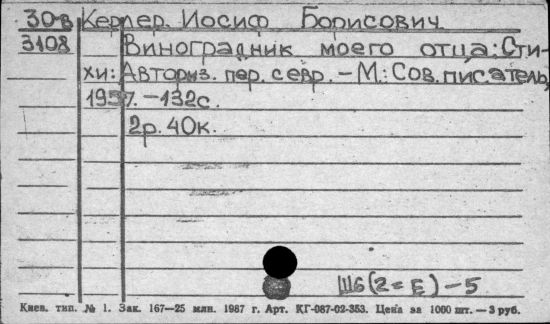 30-в Керлер. Иосиф Борисович
3108 Виноградник моего отца: Сти-
хи: Авториз. пер. с евр. – М.: Сов. писатель,
1957. – 132с.
2р. 40к.
Ш6(2=Е) – 5
Киев. тип. № 1. Зак. 167—25 млн. 1987 г. Арт. КГ-087-02-353. Цена за 1000 шт. — 3 руб.